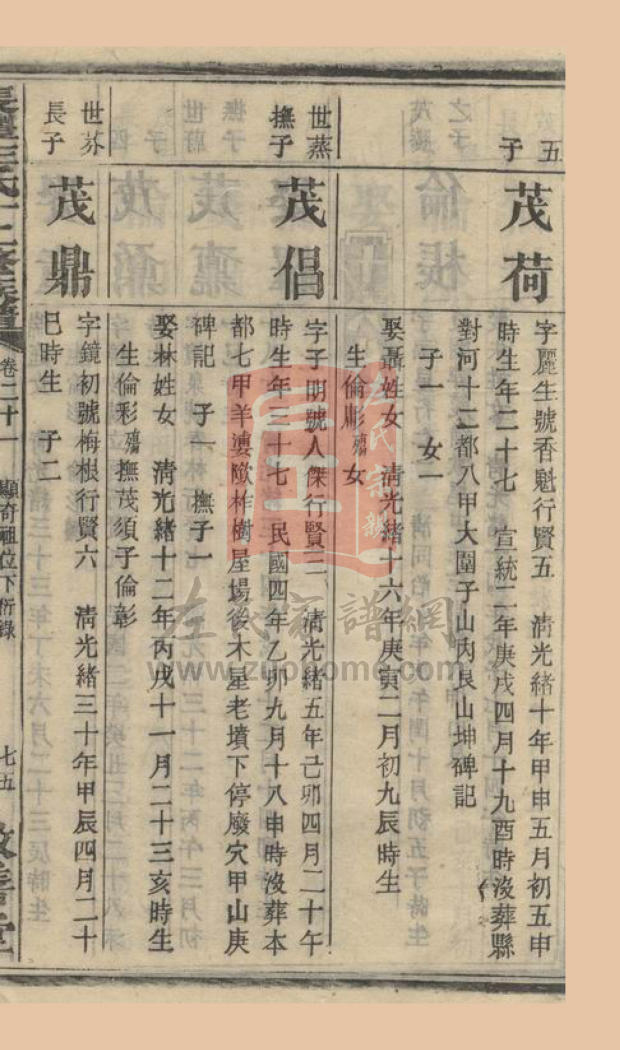 五
子
茂荷
字麗生號香魁行賢五　清光緒十年甲申五月初五申
時生年二十七　宣統二年庚戌四月十九酉時沒葬縣
對河十二都八甲大圍子山內艮山坤碑記
子一　女一
娶聶姓女　清光緒十六年庚寅二月初九辰時生
生倫彫殤女
世蒸
撫子
茂倡
字子明號人傑行賢三　清光緒五年己卯四月二十午
時生年三十七　民國四年乙卯九月十八申時沒葬本
都七甲羊漊歐柞樹屋場後木星老墳下停廢穴甲山庚
碑記　子一　撫子一
娶林姓女　清光緒十二年丙戌十一月二十三亥時生
生倫彩殤撫茂須子倫彰
世芬
長子
茂鼎
字鏡初號梅根行賢六　清光緒三十年甲辰四月二十
巳時生　子二
卷二十一
顯奇祖位下衍錄
七五
左氏宗親
左氏家譜網
www.zuohome.com